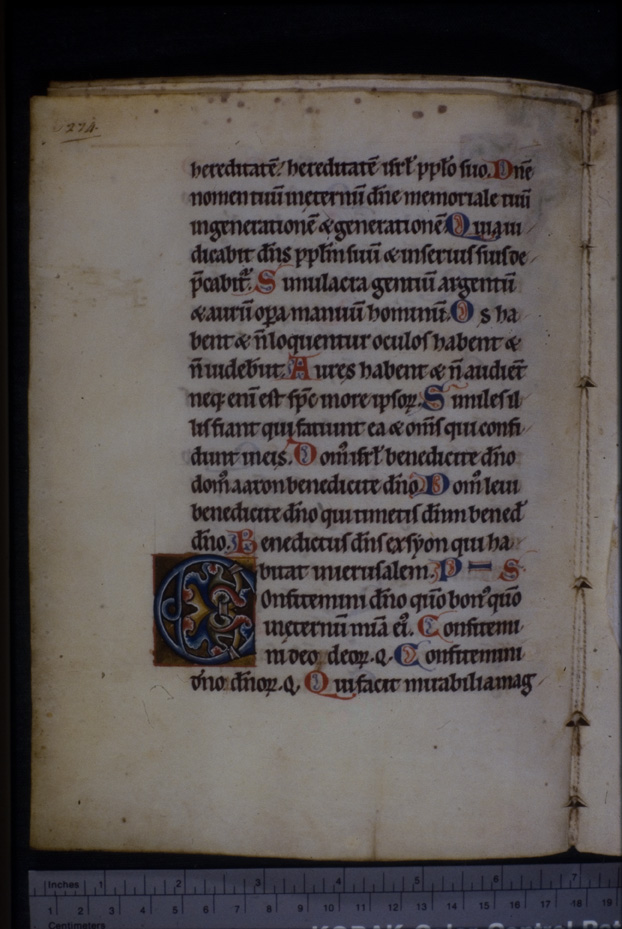 274.
hereditatē. hereditatē isrł pplo suo. Dnē
nomen tuū ineternū dñe memoriale tuū
ingenerationē & generationē Quia iu
dicabit dñs pplm suū & inseruis suis de
p̄cabit̄. Simulacra gentiū argentū
& aurū opa manuū hominū. Os ha
bent & ñ loquentur oculos habent &
ñ uidebūt. Aures habent & ñ audient
neq; enī est sp̄s inore ipsoꝝ. Similes il
lis fiant qui faciunt ea & om̄s qui confi
dunt ineis. Domꝰ isrł benedicite dño
domꝰ aaron benedicite dño Domꝰ leui
benedicite dño qui timetis dnm bened̄
dño. Benedictus dñs ex syon qui ha
bitat inierusalem. P S
Confitemini dño qm̄ō bonꝰ qm̄ō
ineternū mīa eiꝰ. Confitemi
ni deo deoꝝ. Q. Confitemini
dño dñoꝝ. Q. Qui facit mirabilia mag
Inches 1 2 3 4 5 6 7
1 2 3 4 5 6 7 8 9 10 11 12 13 14 15 16 17 18 19
Centimeters